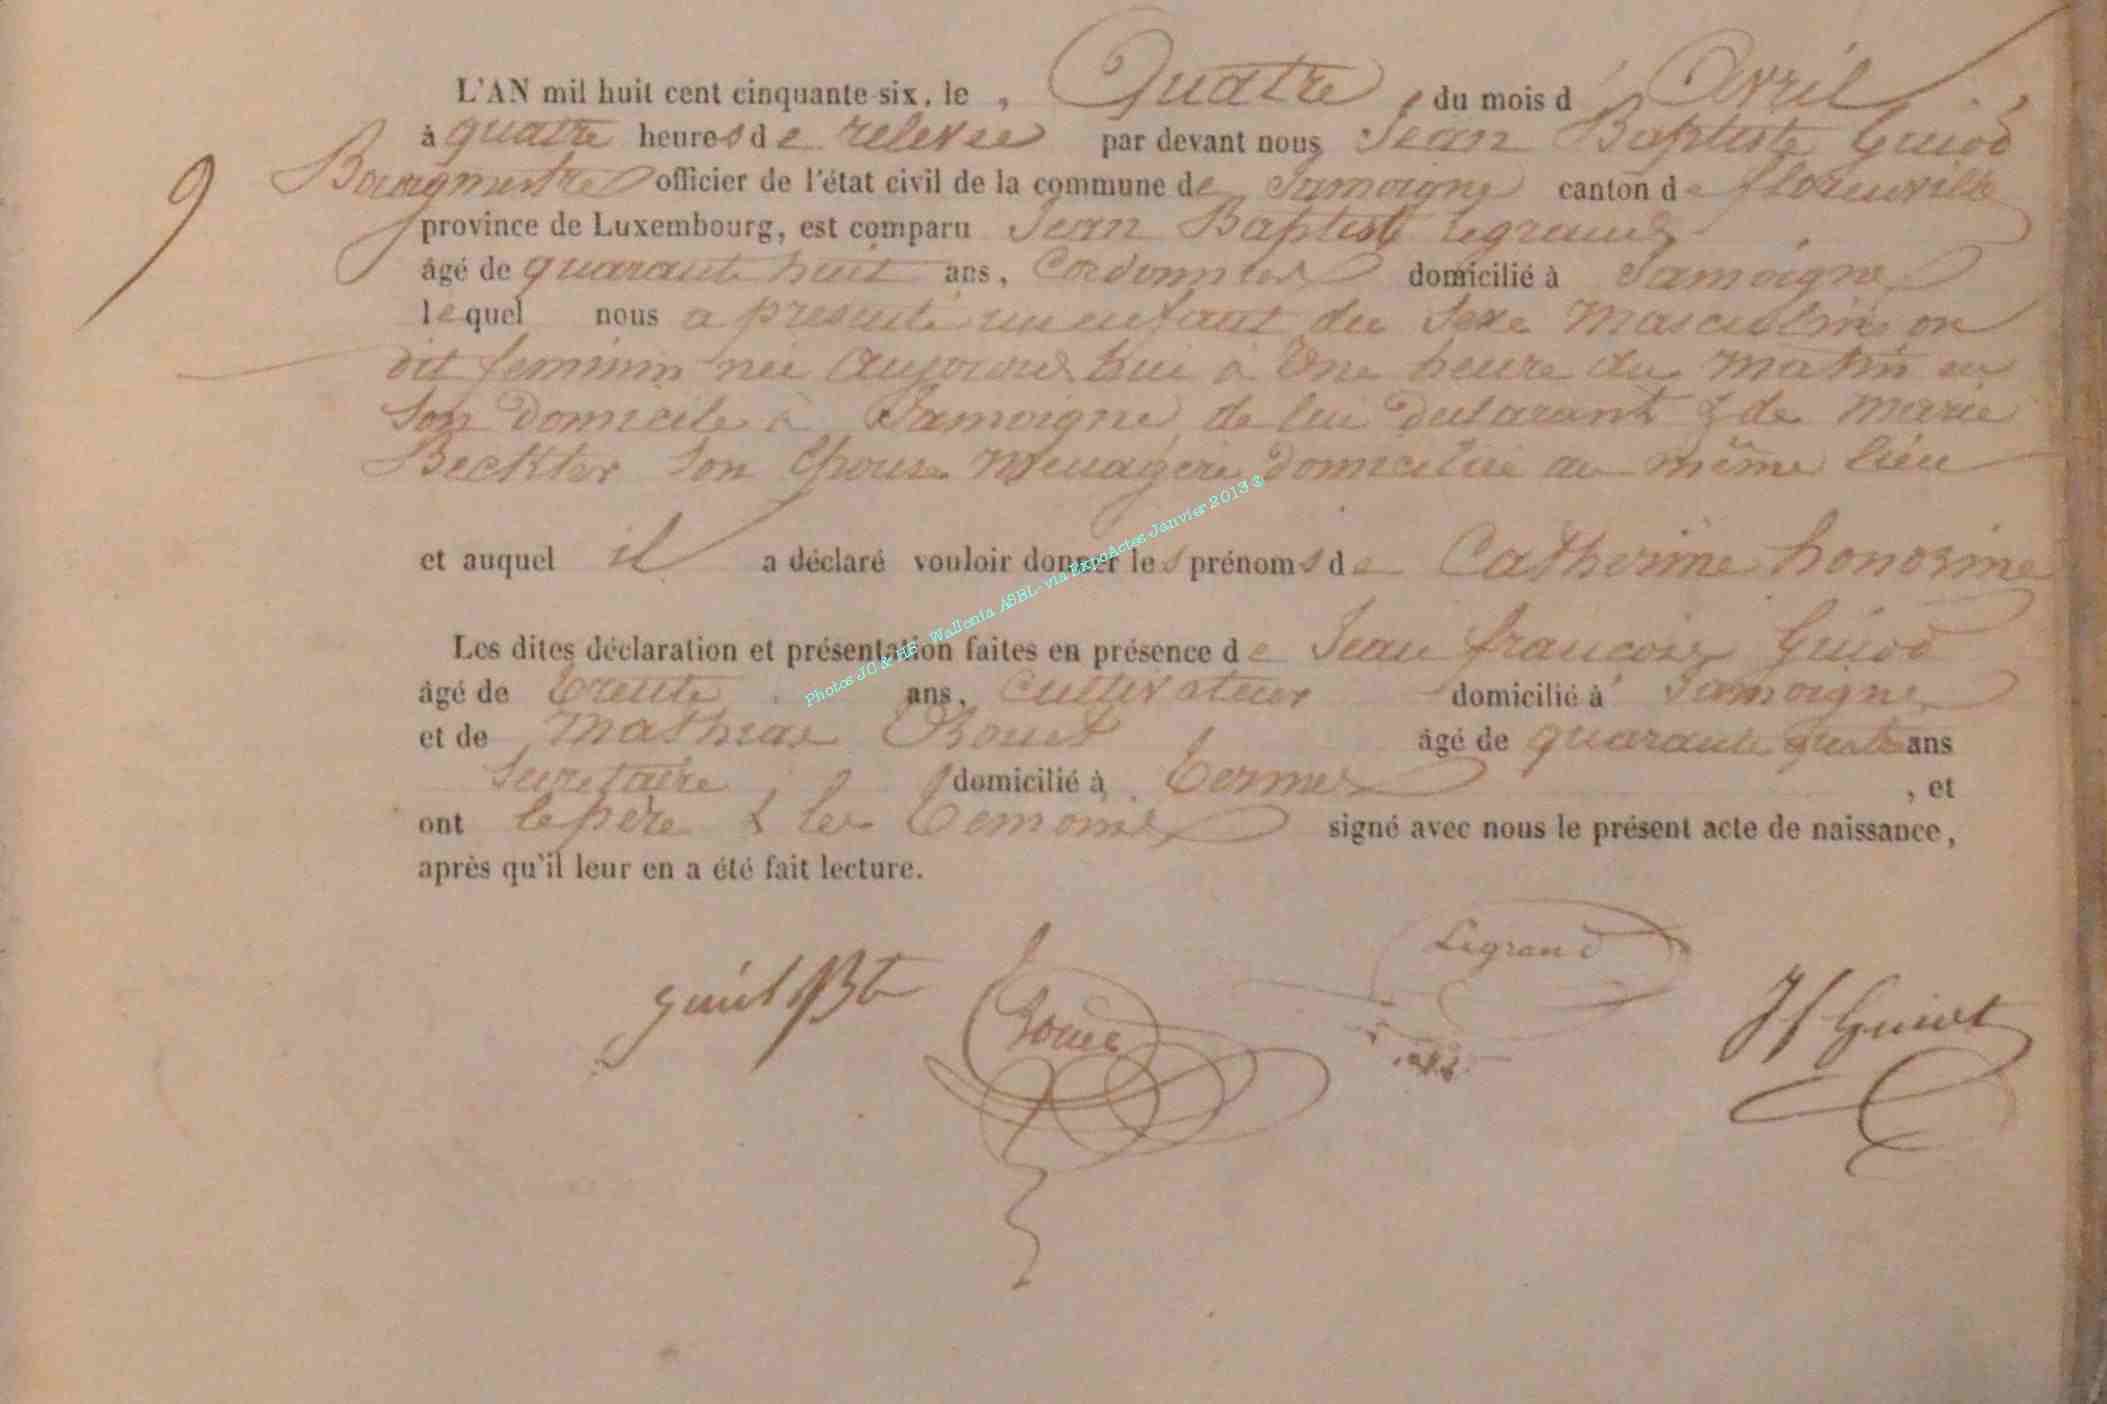 L'AN mil huit cent cinquante-six, le Quatre du mois d'Avril
9
à quatre heures de relevée par devant nous Jean Baptiste Guiot
Bourgmestre officier de l'état civil de la commune de Jamoigne canton de florenville
province de Luxembourg, est comparu Jean Baptiste Legrand
âgé de quarante huit ans, Cordonnier domicilié à Jamoigne
lequel nous a presenté un enfant du Sexe Masculin on
dit feminin née aujourd'hui à Une heure du matin en
Son Domicile à Jamoigne de lui declarant & de Marie
Beckter Son Epouse Menagère domiciliée au même lieu
et auquel il a déclaré vouloir donner les prénoms de Catherine honorine
Les dites déclaration et présentation faites en présence de Jean francois Guiot
âgé de trente ans, Cultivateur domicilié à Jamoigne
et de Mathias âgé de quarante quatre ans
Secretaire domicilié à termes , et
ont le père & les temoins signé avec nous le présent acte de naissance,
après qu'il leur en a été fait lecture.
Legrand
guiot JBte
JF Guiot
Photos JC & HF - Wallonia ASBL - via ExpoActes Janvier 2013 ®